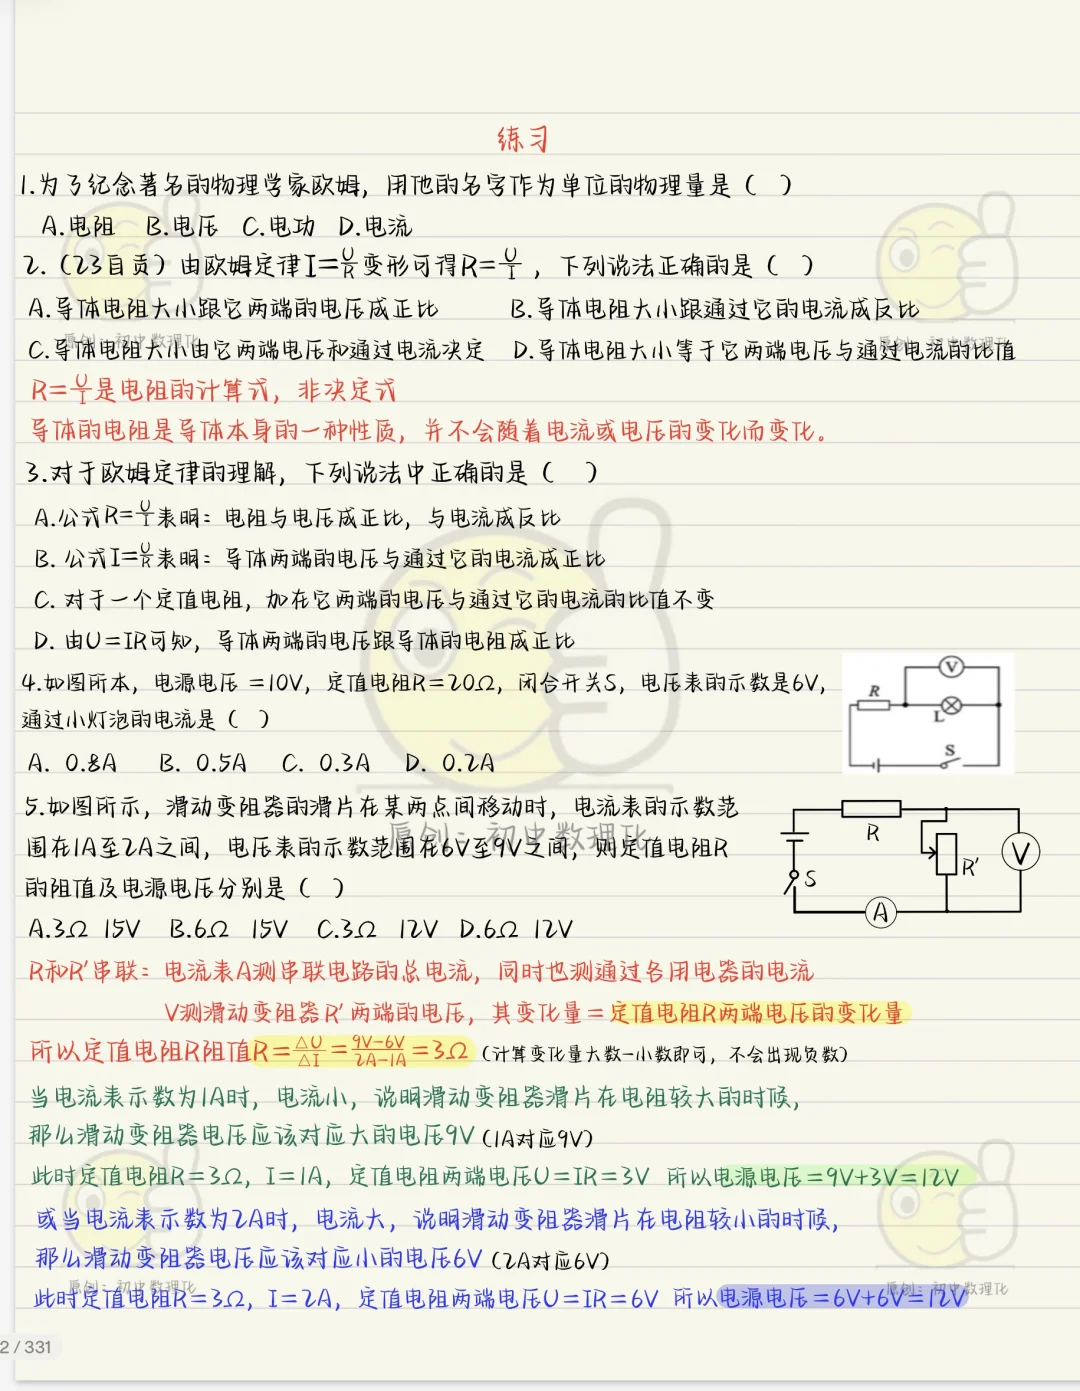 练习
1.为了纪念著名的物理学家欧姆，用他的名字作为单位的物理量是（ ）
A.电阻 B.电压 C.电功 D.电流
2.（23自贡）由欧姆定律I=U/R变形可得R=U/I，下列说法正确的是（ ）
A.导体电阻大小跟它两端的电压成正比 B.导体电阻大小跟通过它的电流成反比
原创：初中数理化 原创：初中数理化
C.导体电阻大小由它两端电压和通过电流决定 D.导体电阻大小等于它两端电压与通过电流的比值
R=U/I是电阻的计算式，非决定式
导体的电阻是导体本身的一种性质，并不会随着电流或电压的变化而变化。
3.对于欧姆定律的理解，下列说法中正确的是（ ）
A.公式R=U/I表明：电阻与电压成正比，与电流成反比
B.公式I=U/R表明：导体两端的电压与通过它的电流成正比
C.对于一个定值电阻，加在它两端的电压与通过它的电流的比值不变
D.由U=IR可知，导体两端的电压跟导体的电阻成正比
4.如图所本，电源电压 =10V，定值电阻R=20Ω，闭合开关S，电压表的示数是6V，
通过小灯泡的电流是（ ）
A. 0.8A B. 0.5A C. 0.3A D. 0.2A
V
R
L
S
5.如图所示，滑动变阻器的滑片在某两点间移动时，电流表的示数范
围在1A至2A之间，电压表的示数范围在6V至9V之间，则定值电阻R
的阻值及电源电压分别是（ ）
原创：初中数理化
A.3Ω 15V B.6Ω 15V C.3Ω 12V D.6Ω 12V
R
R′
V
S
A
R和R′串联：电流表A测串联电路的总电流，同时也测通过各用电器的电流
V测滑动变阻器R′两端的电压，其变化量=定值电阻R两端电压的变化量
所以定值电阻R阻值R=△U/△I=9V-6V/2A-1A=3Ω（计算变化量大数-小数即可，不会出现负数）
当电流表示数为1A时，电流小，说明滑动变阻器滑片在电阻较大的时候，
那么滑动变阻器电压应该对应大的电压9V（1A对应9V）
此时定值电阻R=3Ω，I=1A，定值电阻两端电压U=IR=3V 所以电源电压=9V+3V=12V
或当电流表示数为2A时，电流大，说明滑动变阻器滑片在电阻较小的时候，
那么滑动变阻器电压应该对应小的电压6V（2A对应6V）
原创：初中数理化 原创：初中数理化
此时定值电阻R=3Ω，I=2A，定值电阻两端电压U=IR=6V 所以电源电压=6V+6V=12V
2/331